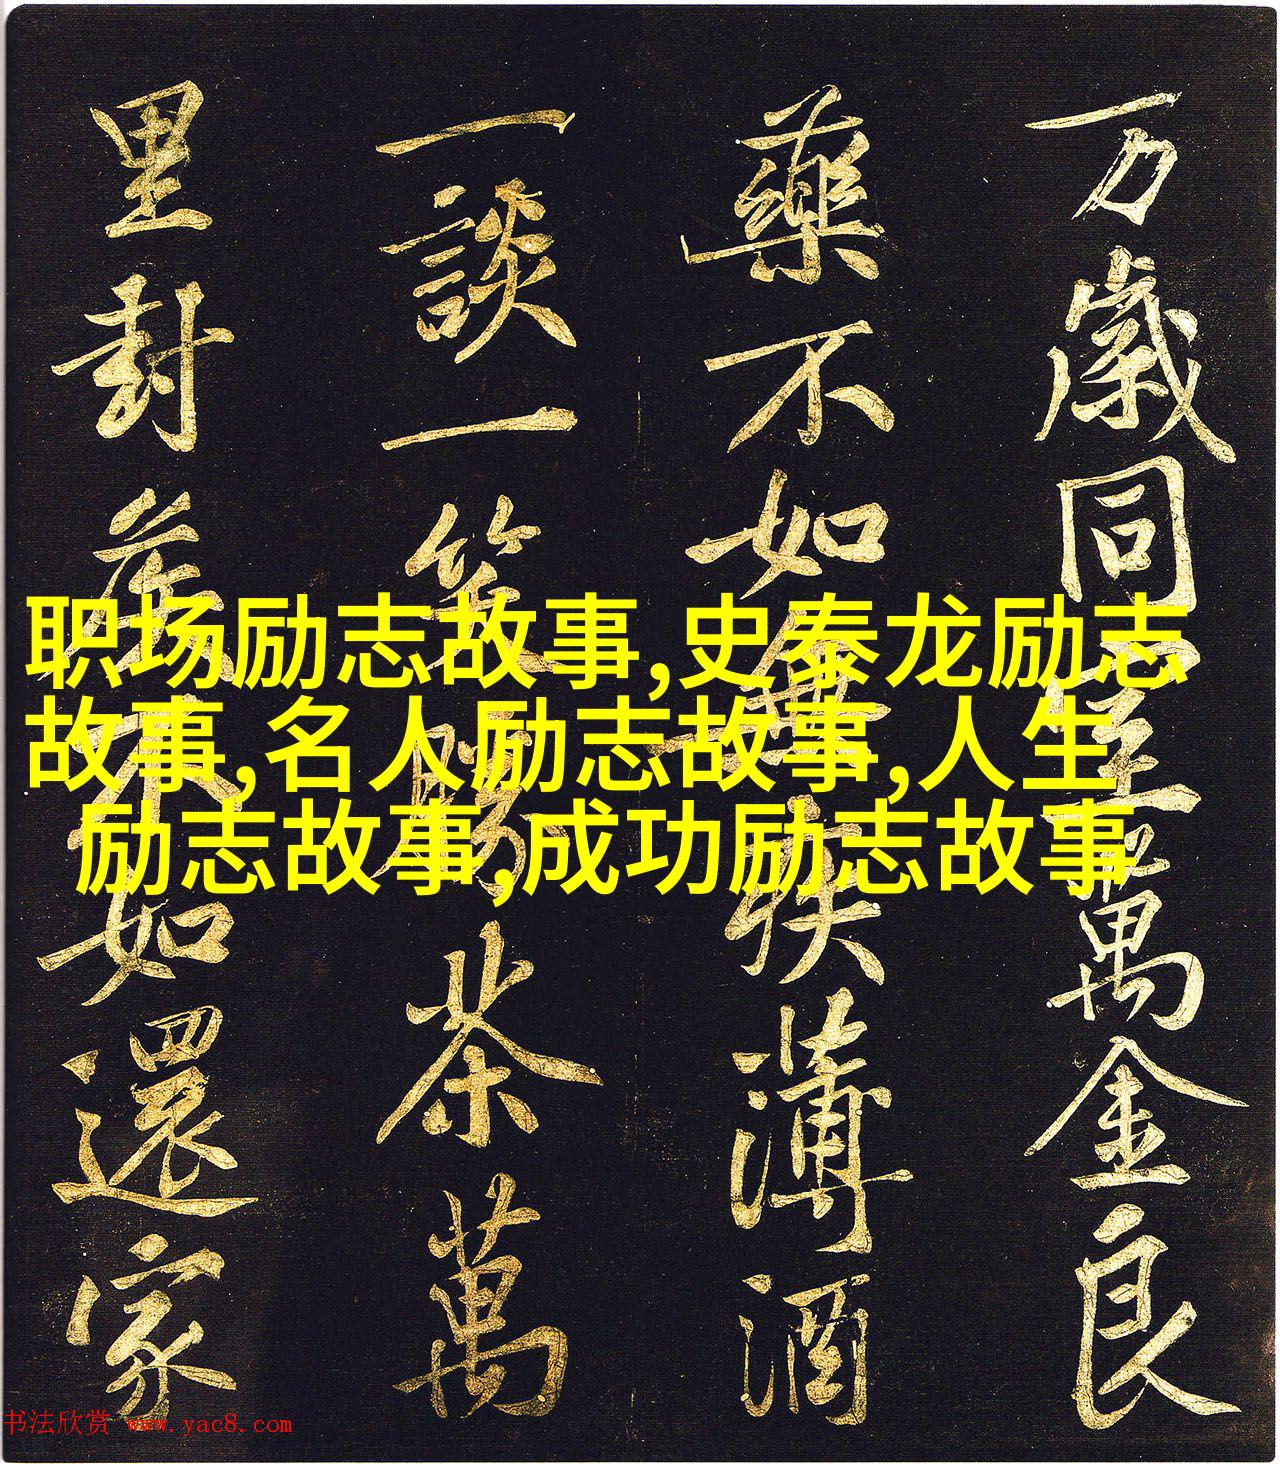 万歲同室萬金良
藥不如無疾薄酒
一談一笑勝茶萬
里封侯不如還家
职场励志故事,史泰龙励志
故事,名人励志故事,人生
励志故事,成功励志故事
书法欣赏 www.yac8.com